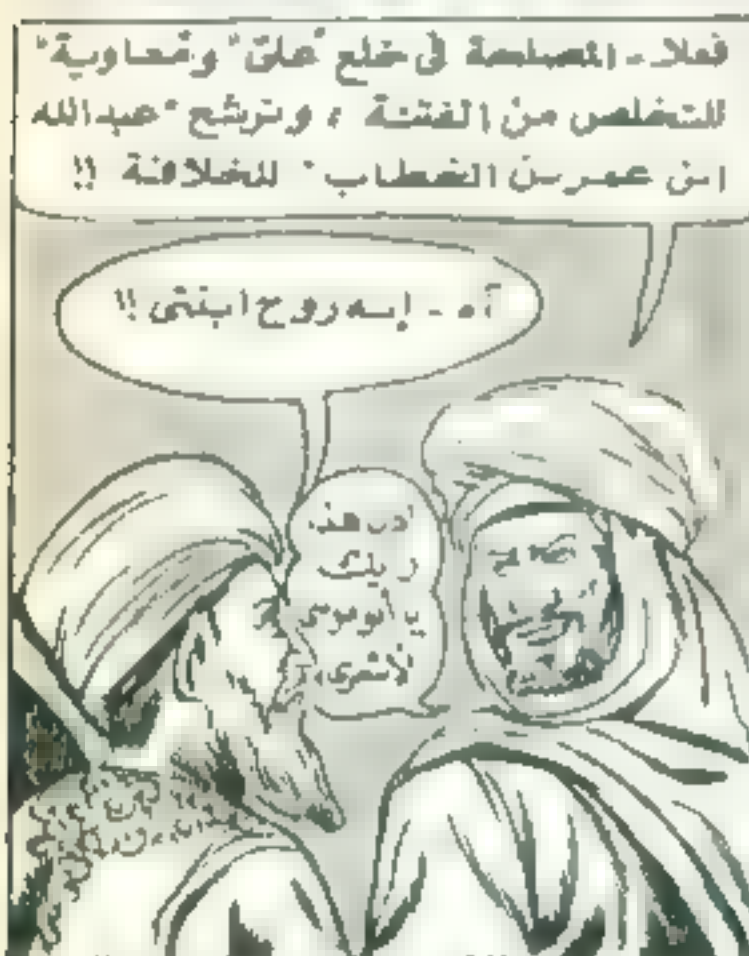 فعلاً - المصلحة فى خلع "على" و"معاوية"
للتخلص من الفتنة ، وترشح "عبدالله
ابن عمر بن الخطاب" للخلافة !!
آه - إنه زوج ابنتى !!
هذا
رأيك
يا أبو موسى
الأشعرى